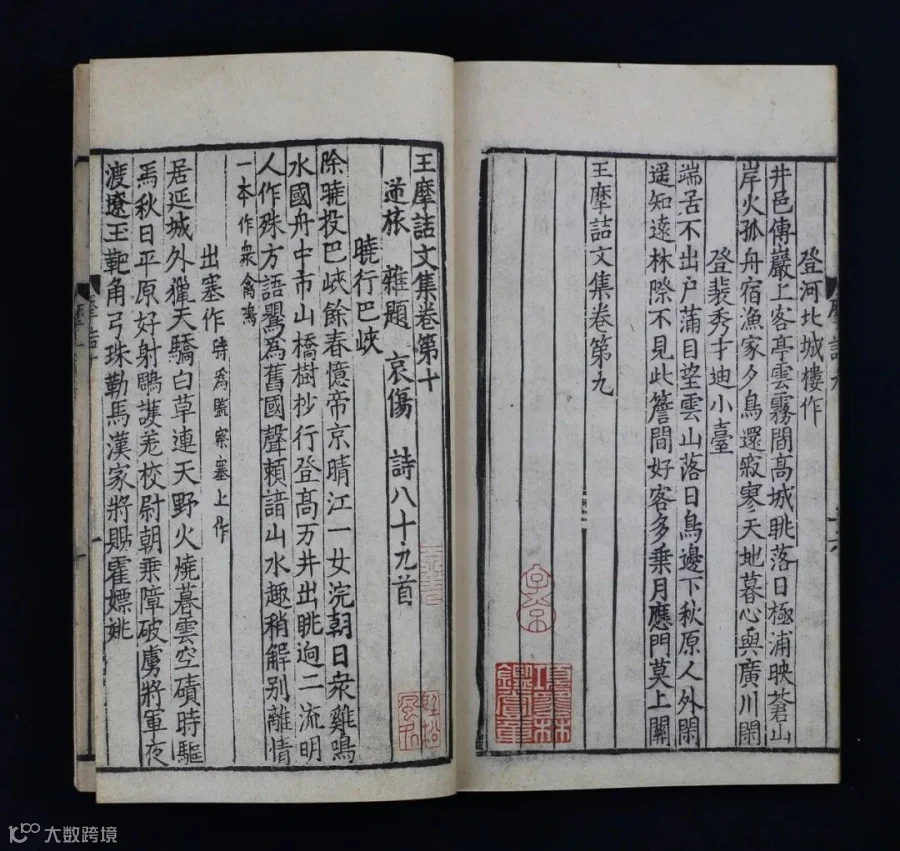 登河北城樓作
井邑傳巖上客亭雲霧間髙城眺落日極浦映蒼山
岸火孤舟宿漁家夕鳥還寂寥天地暮心與廣川閑
登裴秀才迪小臺
端居不出户滿目望雲山落日鳥邊下秋原人外閑
遥知遠林際不見此簷間好客多乗月應門莫上關
王摩詰文集卷第九
王摩詰文集卷第十
逆旅 雜題 哀傷 詩八十九首
曉行巴峽
際曉投巴峽餘春憶帝京晴江一女浣朝日衆雞鳴
水國舟中市山橋樹杪行登髙万井出眺逈二流明
人作殊方語鸎為舊國聲頼諳山水趣稍解别離情
一本作衆禽鳴
出塞作 時為監察塞上作
居延城外獵天驕白草連天野火燒暮雲空磧時驅
馬秋日平原好射鵰護羌校尉朝乗障破虜將軍夜
渡遼玉靶角弓珠勒馬漢家將賜霍嫖姚
大数跨境